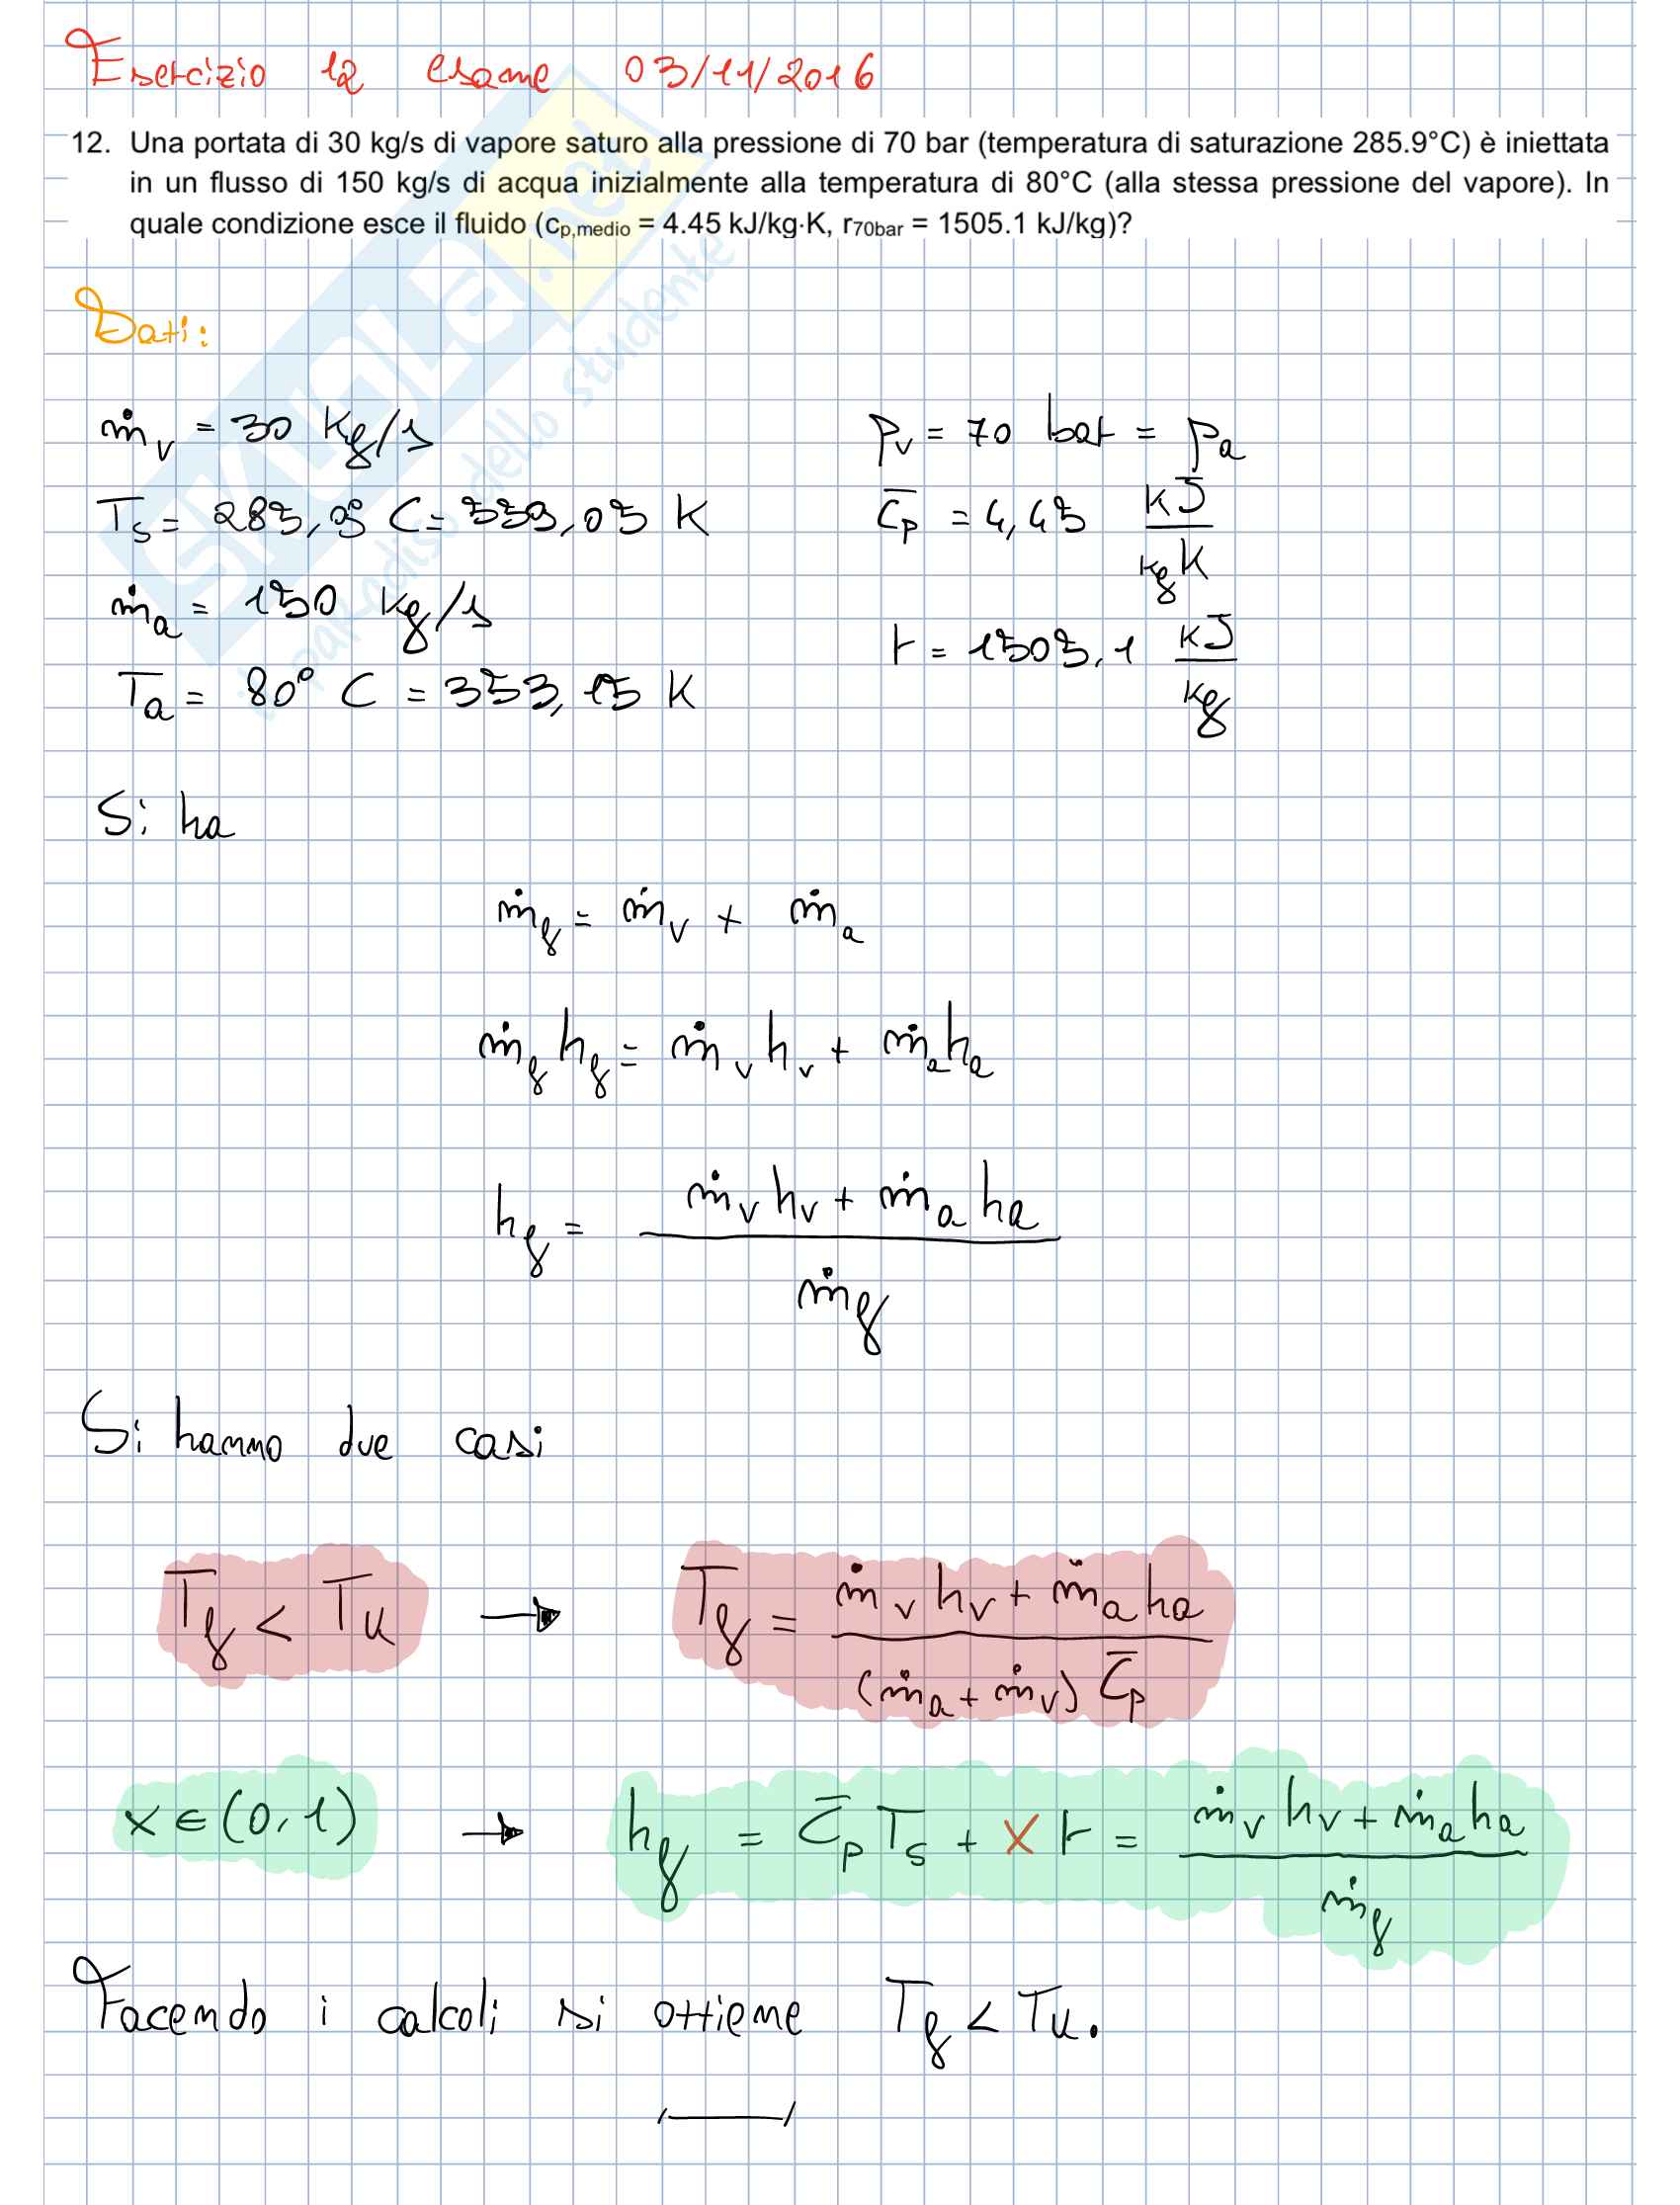 Esercizio 12 esame 03/11/2016
12. Una portata di 30 kg/s di vapore saturo alla pressione di 70 bar (temperatura di saturazione 285.9°C) è iniettata
in un flusso di 150 kg/s di acqua inizialmente alla temperatura di 80°C (alla stessa pressione del vapore). In
quale condizione esce il fluido (cp,medio = 4.45 kJ/kg·K, r70bar = 1505.1 kJ/kg)?
SKUOLA.net
il paradiso dello studente
Dati:
ṁv = 30 kg/s
pv = 70 bar = pa
Ts = 285,9° C = 559,05 K
c̄p = 4,45 kJ/kg K
ṁa = 150 kg/s
r = 1505,1 kJ/kg
Ta = 80° C = 353,15 K
Si ha
ṁf = ṁv + ṁa
ṁf hf = ṁv hv + ṁa ha
hf = (ṁv hv + ṁa ha) / ṁf
Si hanno due casi
Tf < Tu → Tf = (ṁv hv + ṁa ha) / ((ṁa + ṁv) c̄p)
x ∈ (0,1) → hf = c̄p Ts + x r = (ṁv hv + ṁa ha) / ṁf
Facendo i calcoli si ottiene Tf < Tu.